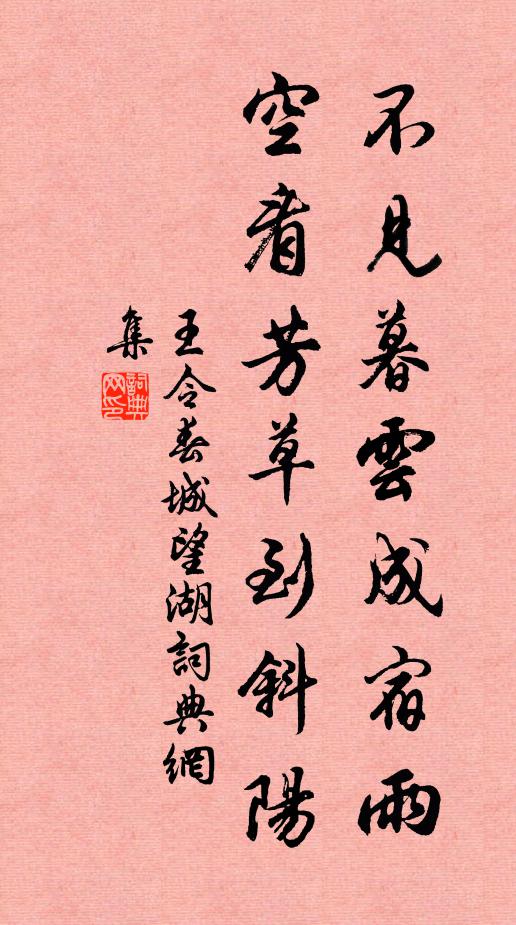 不見暮雲成宿雨
空看芳草到斜陽
王令春城望湖詞典網
集
詞典网印